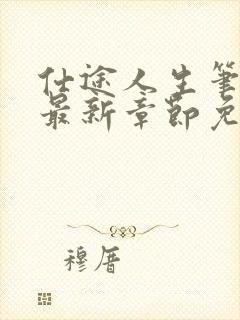 仕途人生笔
最新章节免
穆厝